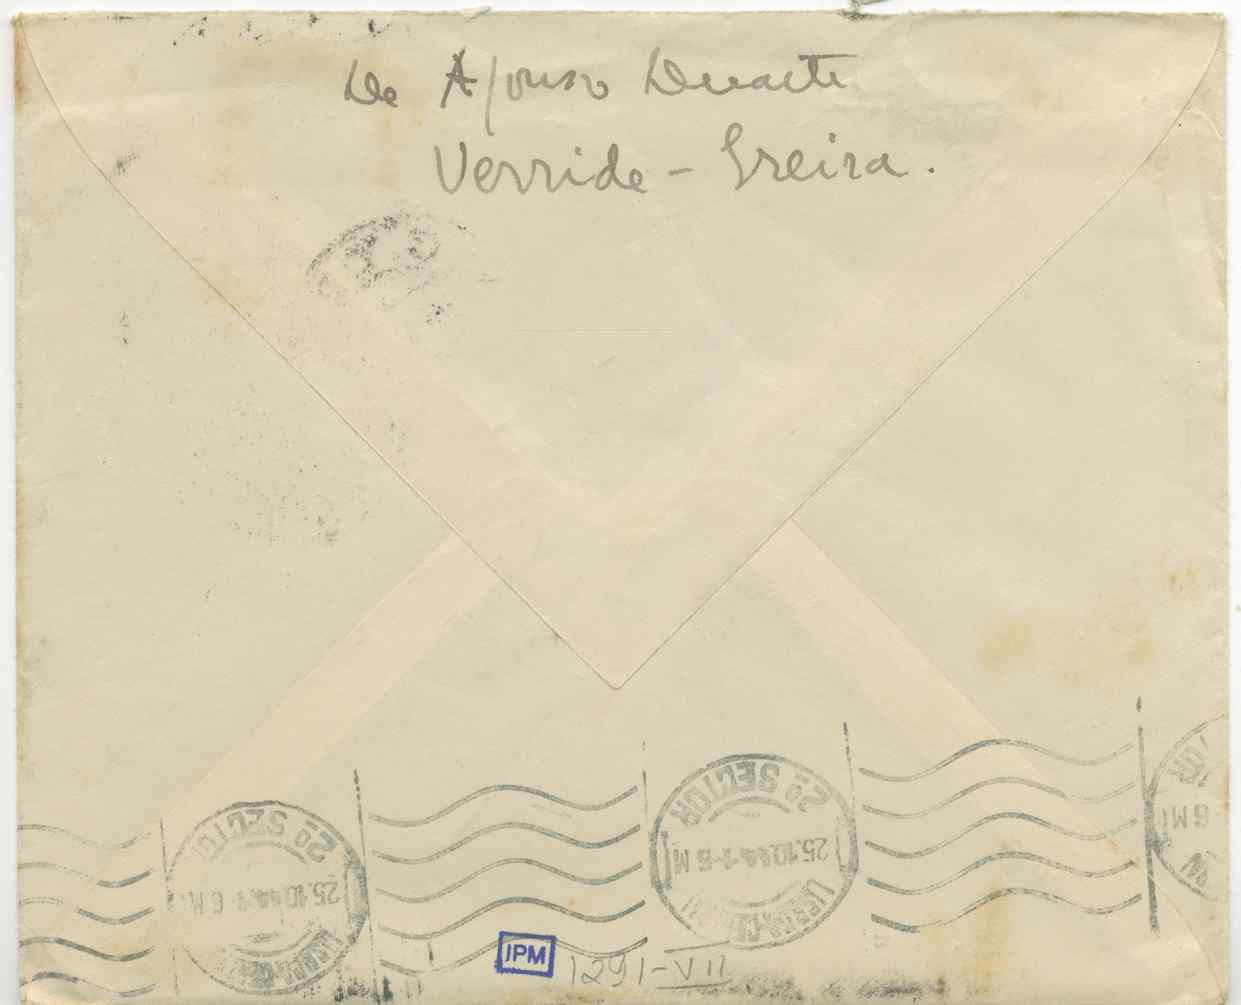 De Afonso Duarte
Verride – Ereira.
2º SECTOR
25.10.44.1-6 M
LISBOA-CENTRAL
2º SECTOR
25.10.44.1-6 M
LISBOA-CENTRAL
TOR
6 M
IPM 1291-VII